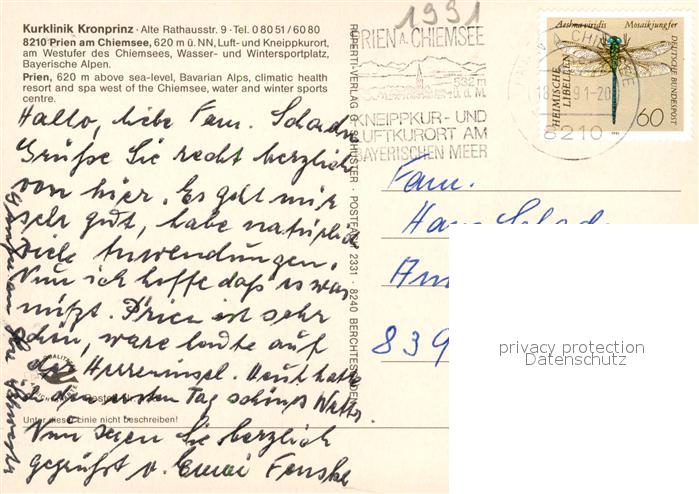 Kurklinik Kronprinz · Alte Rathausstr. 9 · Tel. 0 80 51 / 60 80
8210 Prien am Chiemsee, 620 m ü. NN, Luft- und Kneippkurort,
am Westufer des Chiemsees, Wasser- und Wintersportplatz,
Bayerische Alpen.
Prien, 620 m above sea-level, Bavarian Alps, climatic health
resort and spa west of the Chiemsee, water and winter sports
centre.
Hallo, liebe Fam.
Grüße Sie recht herzlich
von hier. Es geht mir
sehr gut, habe natürlich
viele Anwendungen.
Nun ich hoffe daß es was
nützt. Prien ist sehr
schön, ware heute auf
der Herreninsel. Heut hatte
den ersten Tag schönes Wetter.
Nun seien Sie herzlich
gegrüßt v.
Unter dieser Linie nicht beschreiben!
RUPERTI-VERLAG G. SCHUSTER · POSTFACH 2331 · 8240 BERCHTESGADEN
1991
PRIEN A. CHIEMSEE
532 m
ü. d. M.
KNEIPPKUR- UND
LUFTKURORT AM
BAYERISCHEN MEER
8210
Aeshna viridis Mosaikjungfer
HEIMISCHE
LIBELLEN
DEUTSCHE BUNDESPOST
60
Fam.
Hans
839
privacy protection
Datenschutz